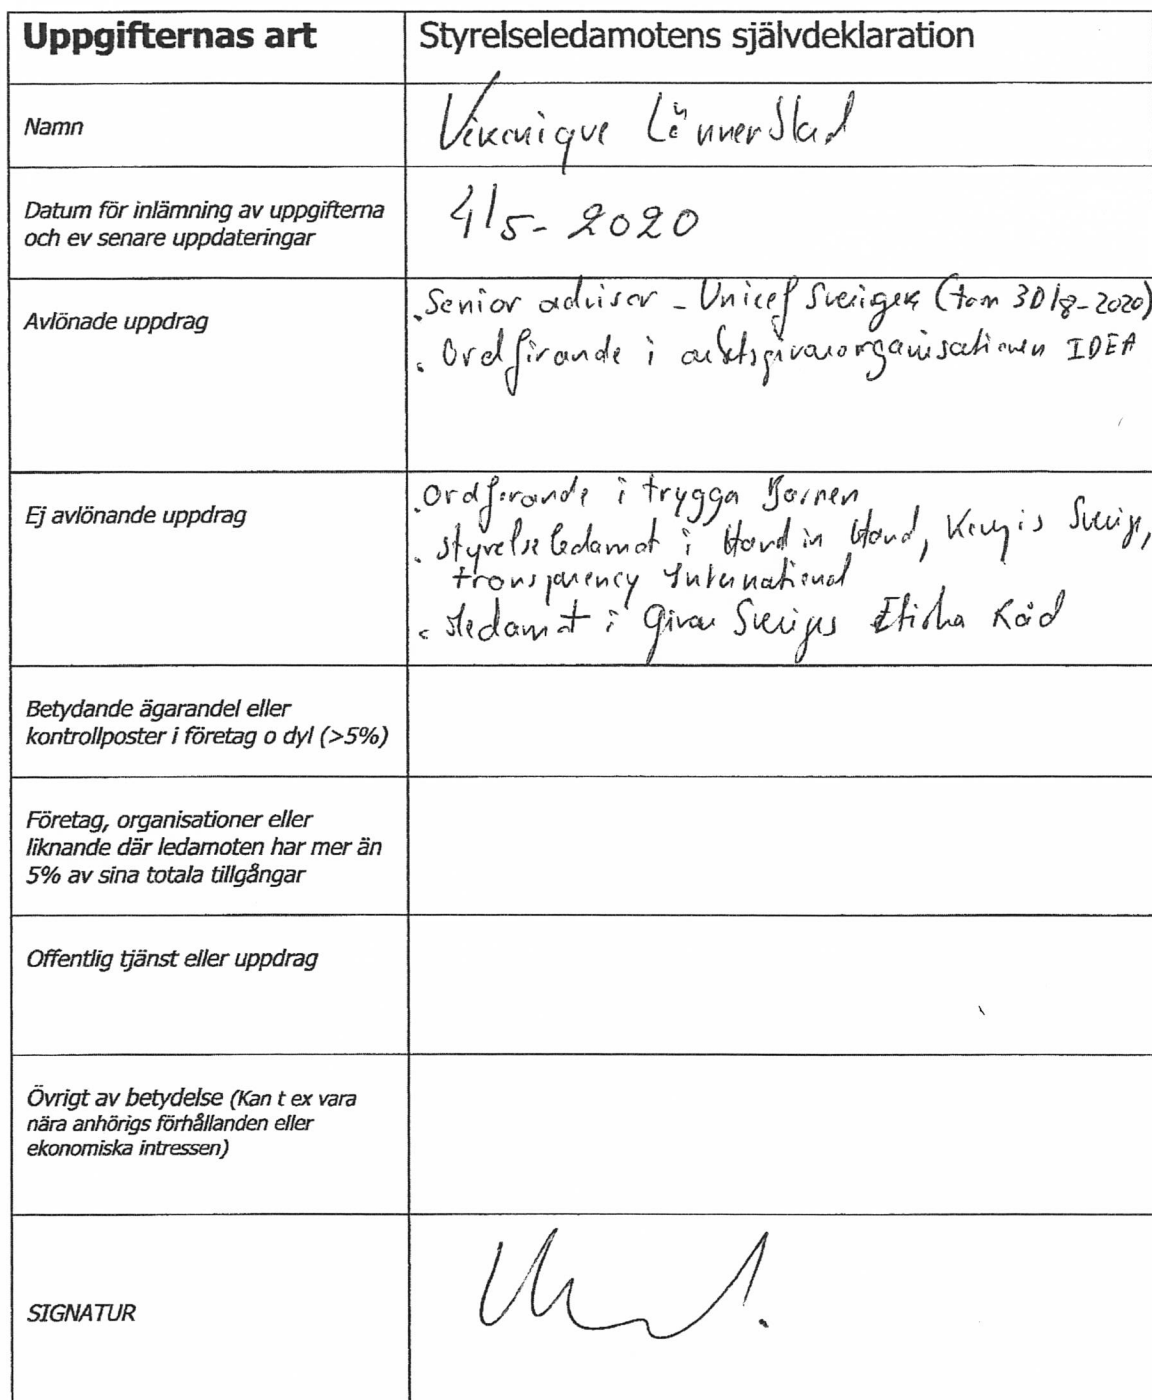 Uppgifternas art
Styrelseledamotens självdeklaration
Namn
Véronique Lönnerstad
Datum för inlämning av uppgifterna
och ev senare uppdateringar
4/5- 2020
Avlönade uppdrag
. Senior advisor - Unicef Sverige (tom 30/8-2020)
. Ordförande i arbetsgivarorganisationen IDEA
Ej avlönande uppdrag
. Ordförande i trygga Barnen
. styrelseledamot i Hand in Hand, Sverige,
transparency International
. ledamot i Giva Sveriges Etiska Råd
Betydande ägarandel eller
kontrollposter i företag o dyl (>5%)
Företag, organisationer eller
liknande där ledamoten har mer än
5% av sina totala tillgångar
Offentlig tjänst eller uppdrag
Övrigt av betydelse (Kan t ex vara
nära anhörigs förhållanden eller
ekonomiska intressen)
SIGNATUR